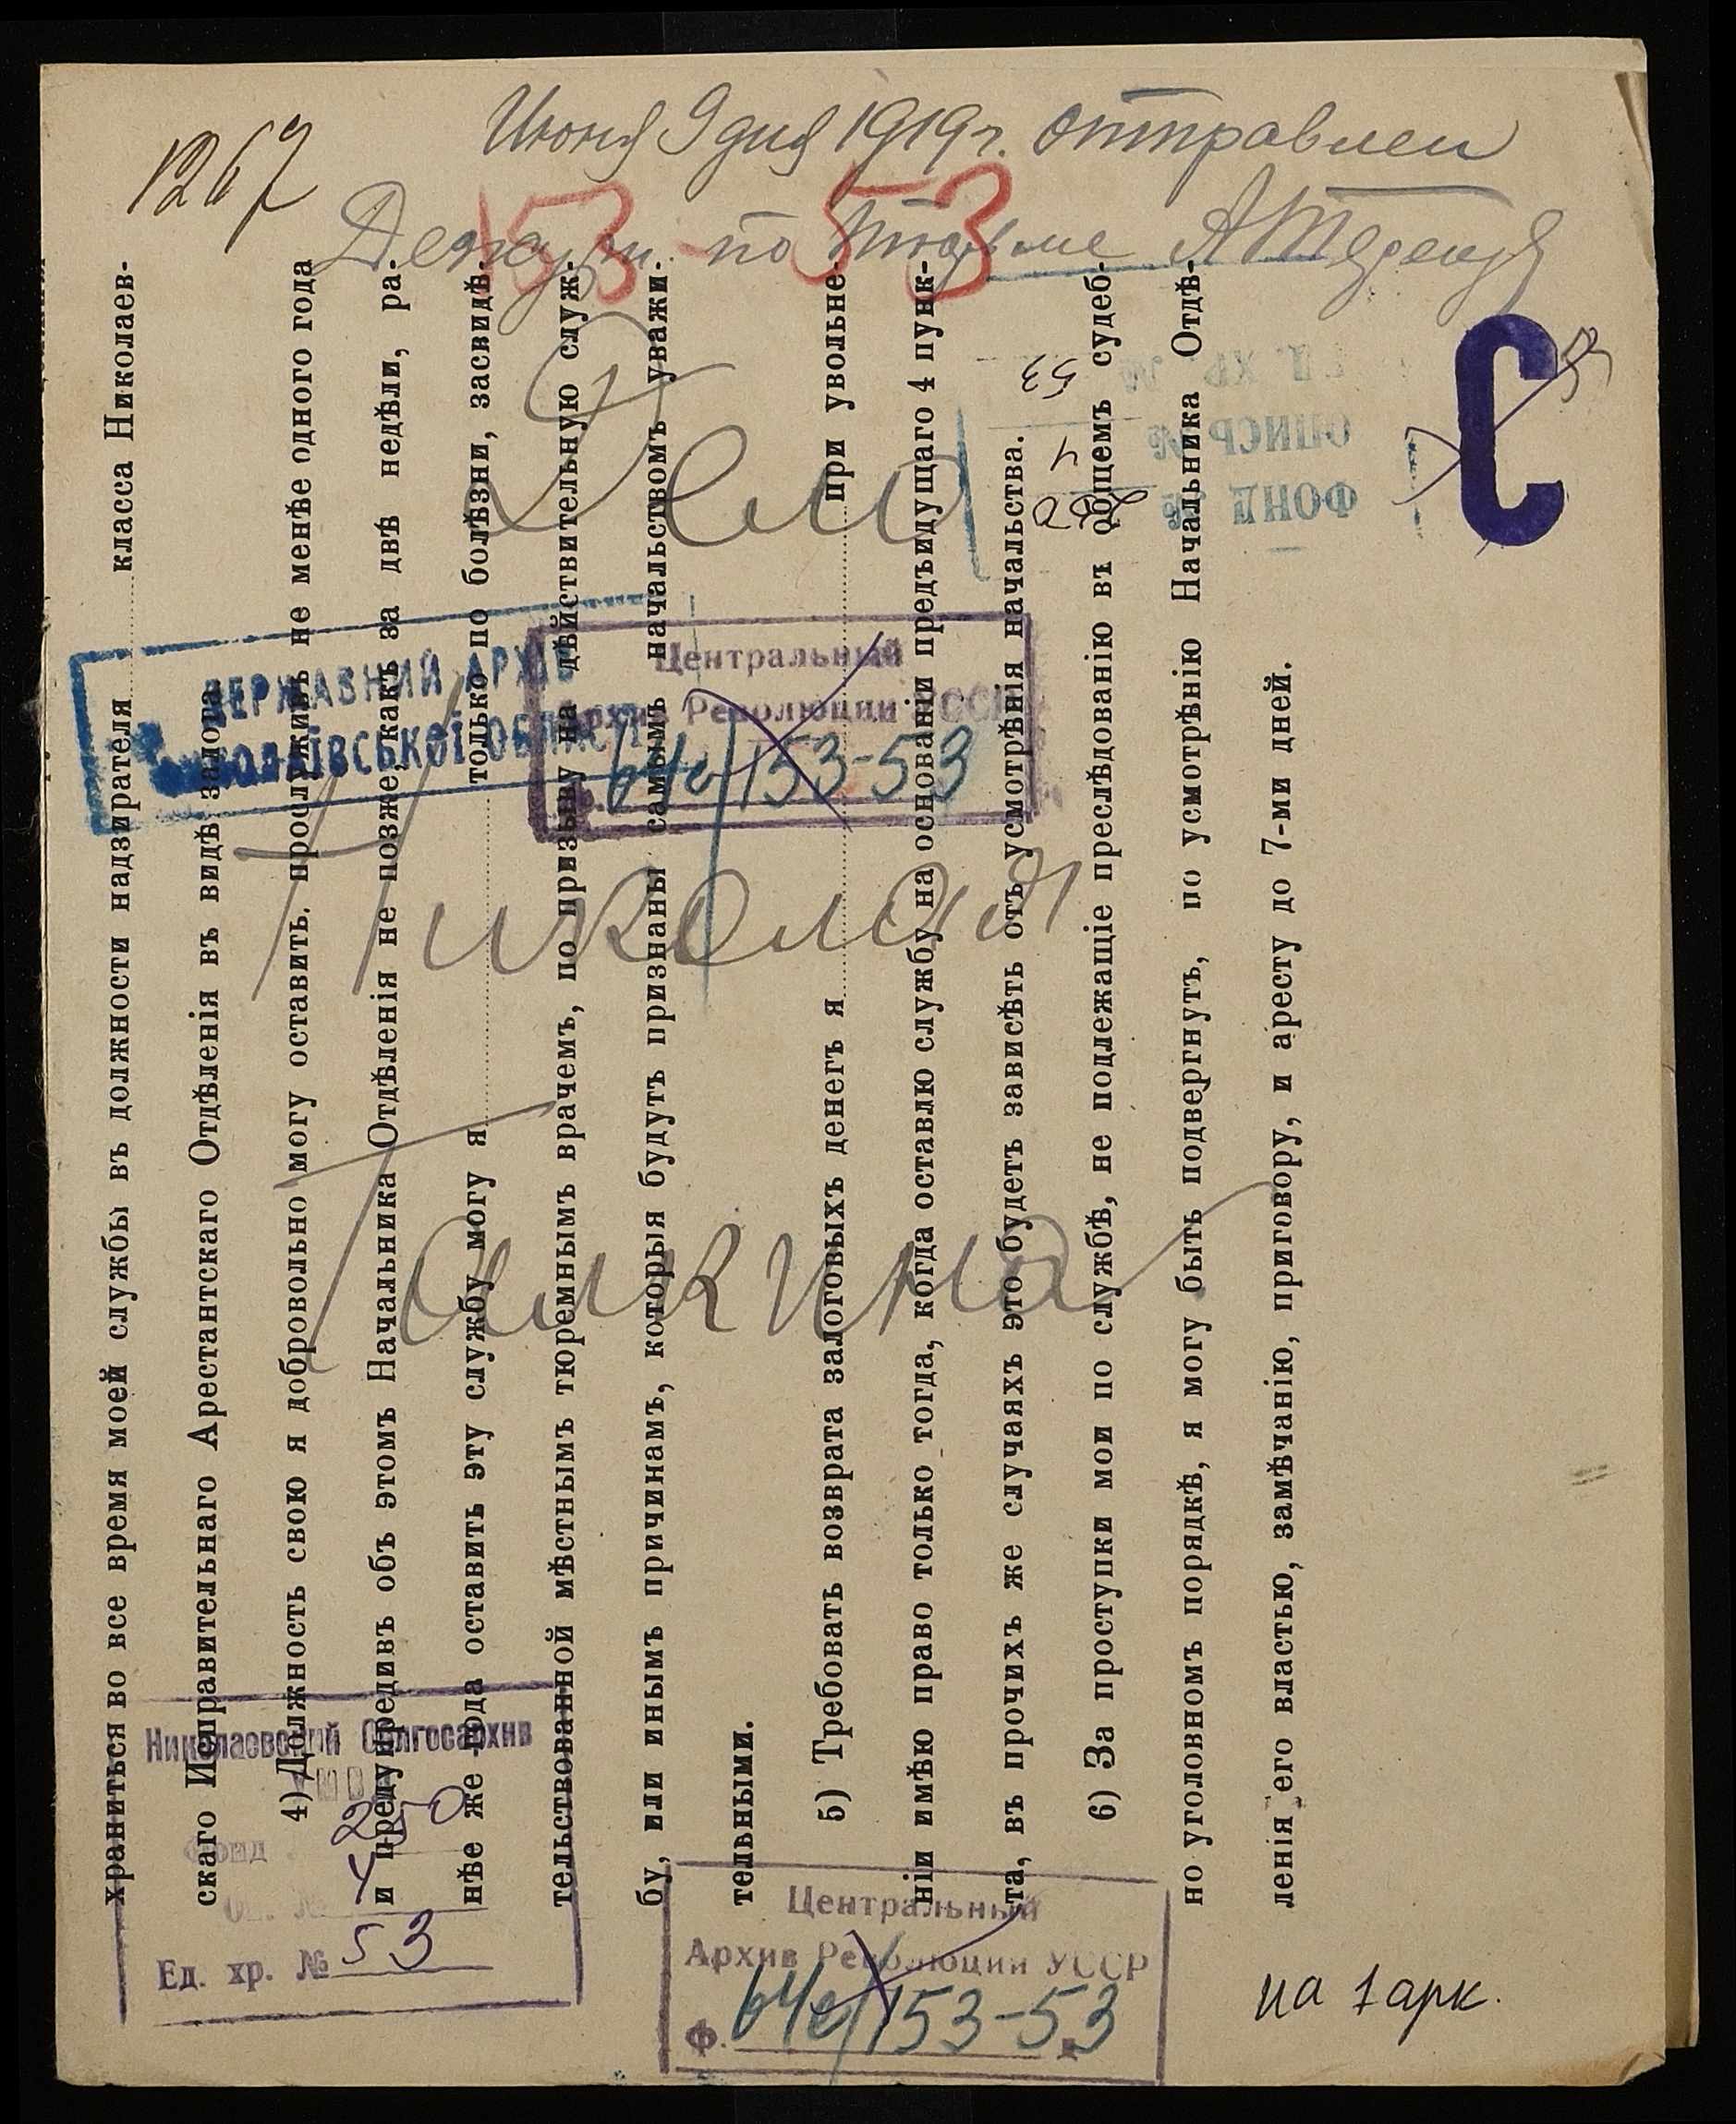 1267
Июня 9 дня 1919 г. отправлен
по тюрьме
153-53
Дело
Николая
С
ДЕРЖАВНИЙ АРХІВ
МИКОЛАЇВСЬКОЇ ОБЛАСТІ
Центральный
Архив Революции УССР
153-53
ФОНД №
ОПИСЬ №
ЕД. ХР. №
250
1
53
храниться во все время моей службы въ должности надзирателя класса Николаев-
скаго Исправительнаго Арестантскаго Отдѣленія въ видѣ залога.
4) Должность свою я добровольно могу оставить, прослуживъ не менѣе одного года
и предупредивъ объ этомъ Начальника Отдѣленія не позже какъ за двѣ недѣли, ра-
нѣе же года оставить эту службу могу я только по болѣзни, засвидѣ-
тельствованной мѣстнымъ тюремнымъ врачемъ, по призыву на дѣйствительную служ-
бу, или инымъ причинамъ, которыя будутъ признаны самымъ начальствомъ уважи-
тельными.
5) Требовать возврата залоговыхъ денегъ я при увольне-
ніи имѣю право только тогда, когда оставлю службу на основаніи предъидущаго 4 пунк-
та, въ прочихъ же случаяхъ это будетъ зависѣть отъ усмотрѣнія начальства.
6) За проступки мои по службѣ, не подлежащіе преслѣдованію въ общемъ судеб-
но уголовномъ порядкѣ, я могу быть подвергнутъ, по усмотрѣнію Начальника Отдѣ-
ленія его властью, замѣчанію, приговору, и аресту до 7-ми дней.
Николаевский Облгосархив
Фонд 250
Оп. № 1
Ед. хр. № 53
Центральный
Архив Революции УССР
Ф. 153-53
на 1 арк.